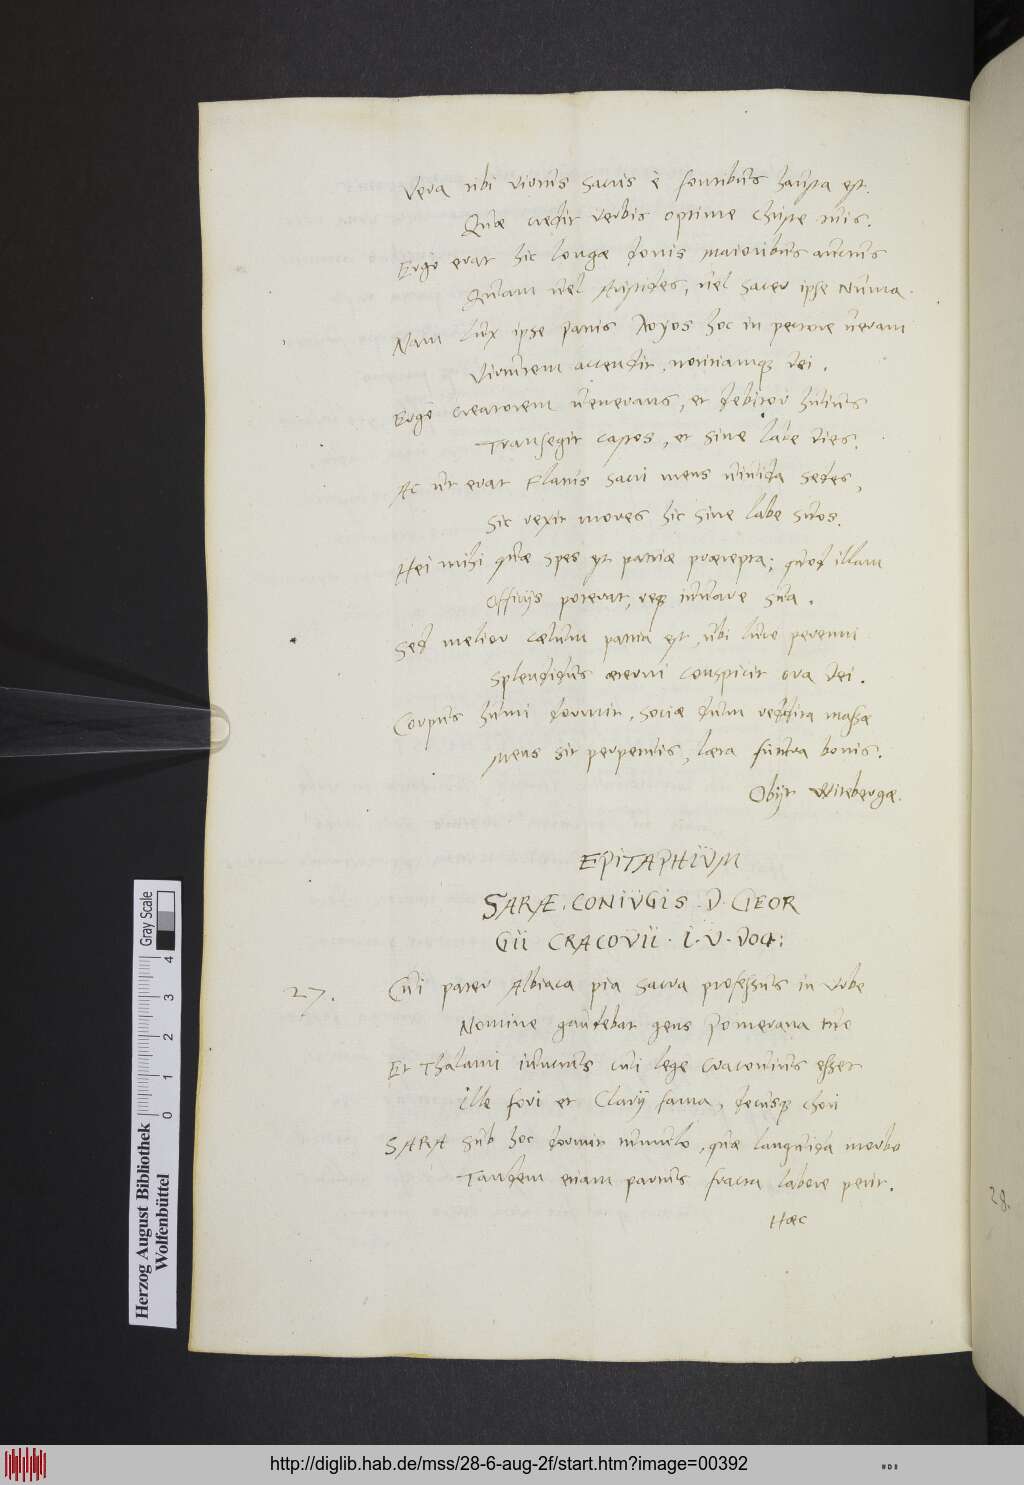 Vera tibi virtus sacris è fontibus hausta est,
Quæ credit verbis optime Christe tuis.
Ergò erat hic longæ donis maioribus auctus
Quàm uel Aristides, uel sacer ipse Numa.
Nam lux ipse patris λογος hoc in pectore ueram
Virtutem accendit, notitiamq dei.
Ergò creatorem uenerans, et debitor huius
Transegit castos, et sine labe dies.
Ac ut erat Flauis sacri mens uiuida sedes,
Sic rexit mores hic sine labe suos.
Hei mihi quæ spes est patriæ prærepta; quod illam
Officijs poterat, req iuuare sua.
Sed melior cælum patria est, ubi luce perenni
Splendidus æterni conspicit ora dei.
Corpus humi dormit, sociæ dum reddita massæ
Mens sit perpetuis, læta futura bonis.
Obijt Witebergæ.
EPITAPHIUM
SARÆ. CONIUGIS. D. GEOR
GII CRACOVII. I. V. DOCT:
27. Cui pater Albiaca pia sacra professus in Vrbe
Nomine gaudebat gens Pomerana tuo
Et Thalami iunctus cui lege Cracouius esset
Ille fori et Clarij fama, decusq chori
SARA sub hoc dormit tumulo, quæ languida morbo
Tandem etiam partus fracta labore perit.
Hæc
28.
Herzog August Bibliothek
Wolfenbüttel
0 1 2 3 4
Gray Scale
http://diglib.hab.de/mss/28-6-aug-2f/start.htm?image=00392